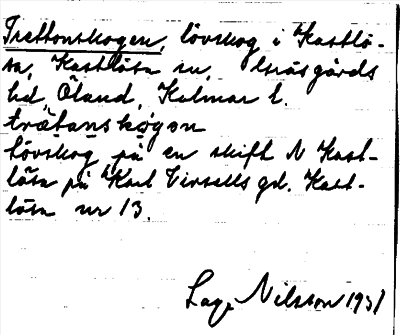 Trettonskogen, lövskog i Kastlö-
sa, Kastlösa sn, Gräsgårds
hd, Öland, Kalmar l.
trätanskogen
Lövskog på en skift N Kast-
lösa på Karl Virsells gd. Kast-
lösa nr 13.
Lage Nilsson 1931